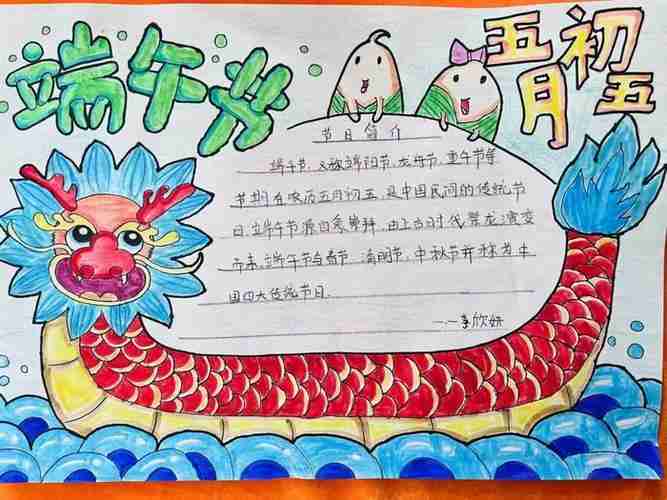 端午节
五月初五
节日简介
端午节，又称端阳节，龙舟节，重午节等
节期在农历五月初五，是中国民间的传统节
日，端午节源自天象崇拜，由上古时代祭龙演变
而来。端午节与春节、清明节、中秋节并称为中
国四大传统节日。
——李欣妍